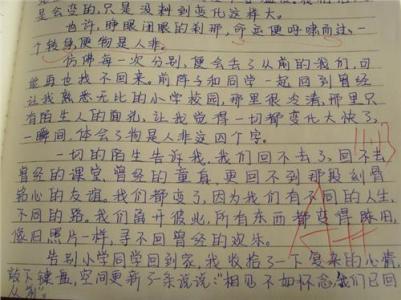 是会变的,只是没料到变化这样大。
也许,睁眼闭眼的刹那,命运便呼啸而过,一
个转身,便物是人非。
仿佛每一次分别,便会丢了从前的我们,可
能再也找不回来。前阵子和同学一起回到曾经
让我熟悉无比的小学校园,那里很冷清,那里只
有陌生人的面孔,让我觉得一切都变化太快了,
一瞬间,体会了物是人非这四个字。
一切的陌生告诉我,我们回不去了,回不去
曾经的课堂,曾经的童真,更回不到那段刻骨
铭心的友谊。我们都变了,因为我们有不同的人生,
不同的路。我们离开彼此,所有东西都变得
像旧照片一样,寻不回曾经的欢乐。
告别小学同学回到家,我收拾了一下复杂的小情,
敲下键盘,空间更新了一条说说:“相见不如怀念,我们已回